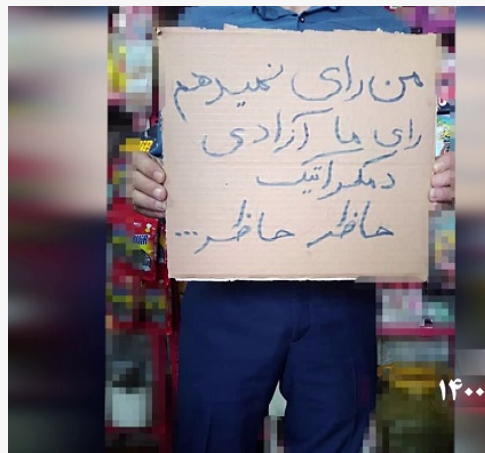 من رای نمیدهم
رای ما آزادی
دمکراتیک
حاظر حاظر...
۱۴۰۰